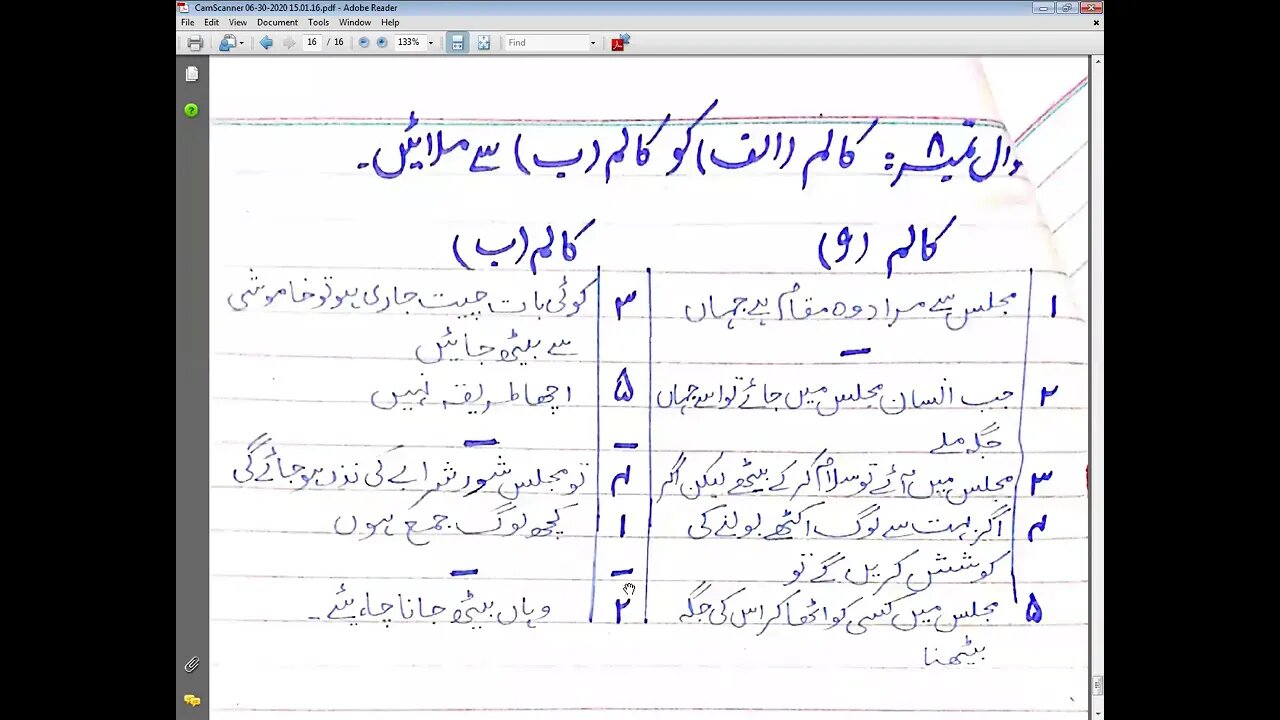 CamScanner 06-30-2020 15.01.16.pdf - Adobe Reader
File Edit View Document Tools Window Help
16 / 16 133% Find
وال نمبر ۸: کالم (الف) کو کالم (ب) سے ملائیں۔
کالم (و) کالم (ب)
۱ مجلس سے مراد وہ مقام ہے جہاں ۳ کوئی بات چیت جاری ہو تو خاموشی
سے بیٹھ جائیں
۲ جب انسان مجلس میں جائے تو اسے جہاں ۵ اچھا طریقہ نہیں
جگہ ملے
۳ مجلس میں آئے تو سلام کر کے بیٹھے لیکن اگر ۴ تو مجلس شور شرابے کی نذر ہو جائے گی
۴ اگر بہت سے لوگ اکٹھے بولنے کی ۱ کچھ لوگ جمع ہوں
کوشش کریں گے تو
۵ مجلس میں کسی کو اٹھا کر اس کی جگہ ۲ وہاں بیٹھ جانا چاہیئے۔
بیٹھنا